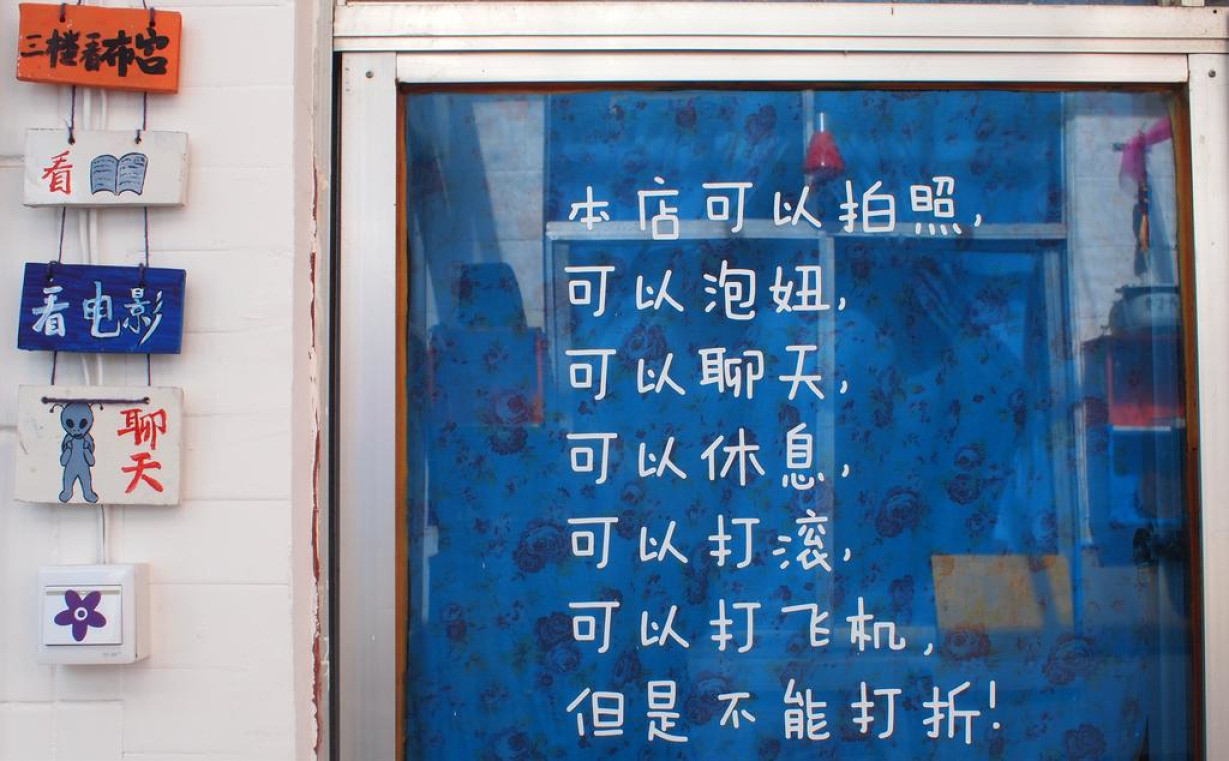 三楼看布宫
看
看电影
聊
天
本店可以拍照,
可以泡妞,
可以聊天,
可以休息,
可以打滚,
可以打飞机,
但是不能打折!